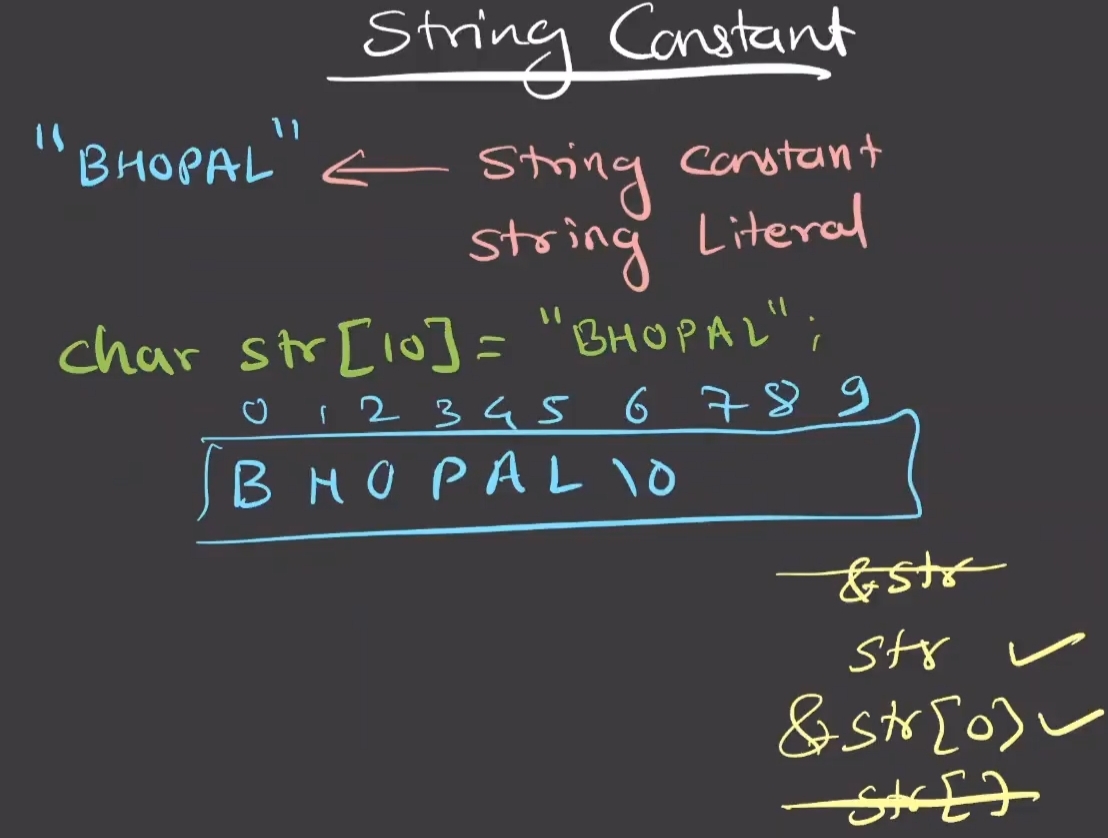 String Constant
"BHOPAL" ← String Constant
String Literal
char str[10] = "BHOPAL";
0 1 2 3 4 5 6 7 8 9
B H O P A L \0
&str
str ✓
&str[0] ✓
str[]